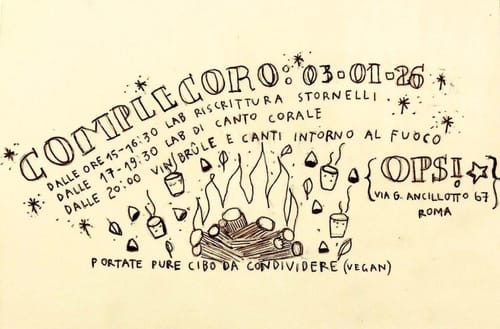 COMPLECORO: 03·01·26
DALLE ORE 15-16:30 LAB RISCRITTURA STORNELLI
DALLE 17-19.30 LAB DI CANTO CORALE
DALLE 20:00 VIN BRÛLE E CANTI INTORNO AL FUOCO
{OPS!}
(VIA G. ANCILLOTTO 67
ROMA
PORTATE PURE CIBO DA CONDIVIDERE (VEGAN)